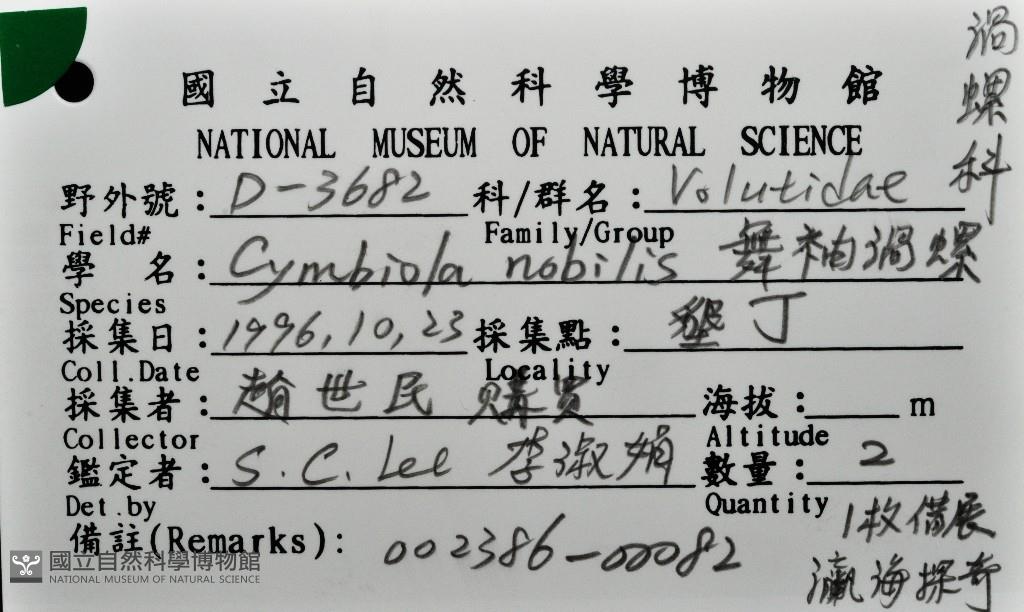 渦螺科
國立自然科學博物館
NATIONAL MUSEUM OF NATURAL SCIENCE
野外號：D-3682 科/群名：Volutidae
Field# Family/Group
學 名：Cymbiola nobilis 舞袖渦螺
Species
採集日：1996,10,23 採集點：墾丁
Coll.Date Locality
採集者：趙世民 購買 海拔： m
Collector Altitude
鑑定者：S.C. Lee 李淑娟 數量：2
Det.by Quantity
備註(Remarks)：002386-00082 1枚備展
瀛海探奇
國立自然科學博物館
NATIONAL MUSEUM OF NATURAL SCIENCE